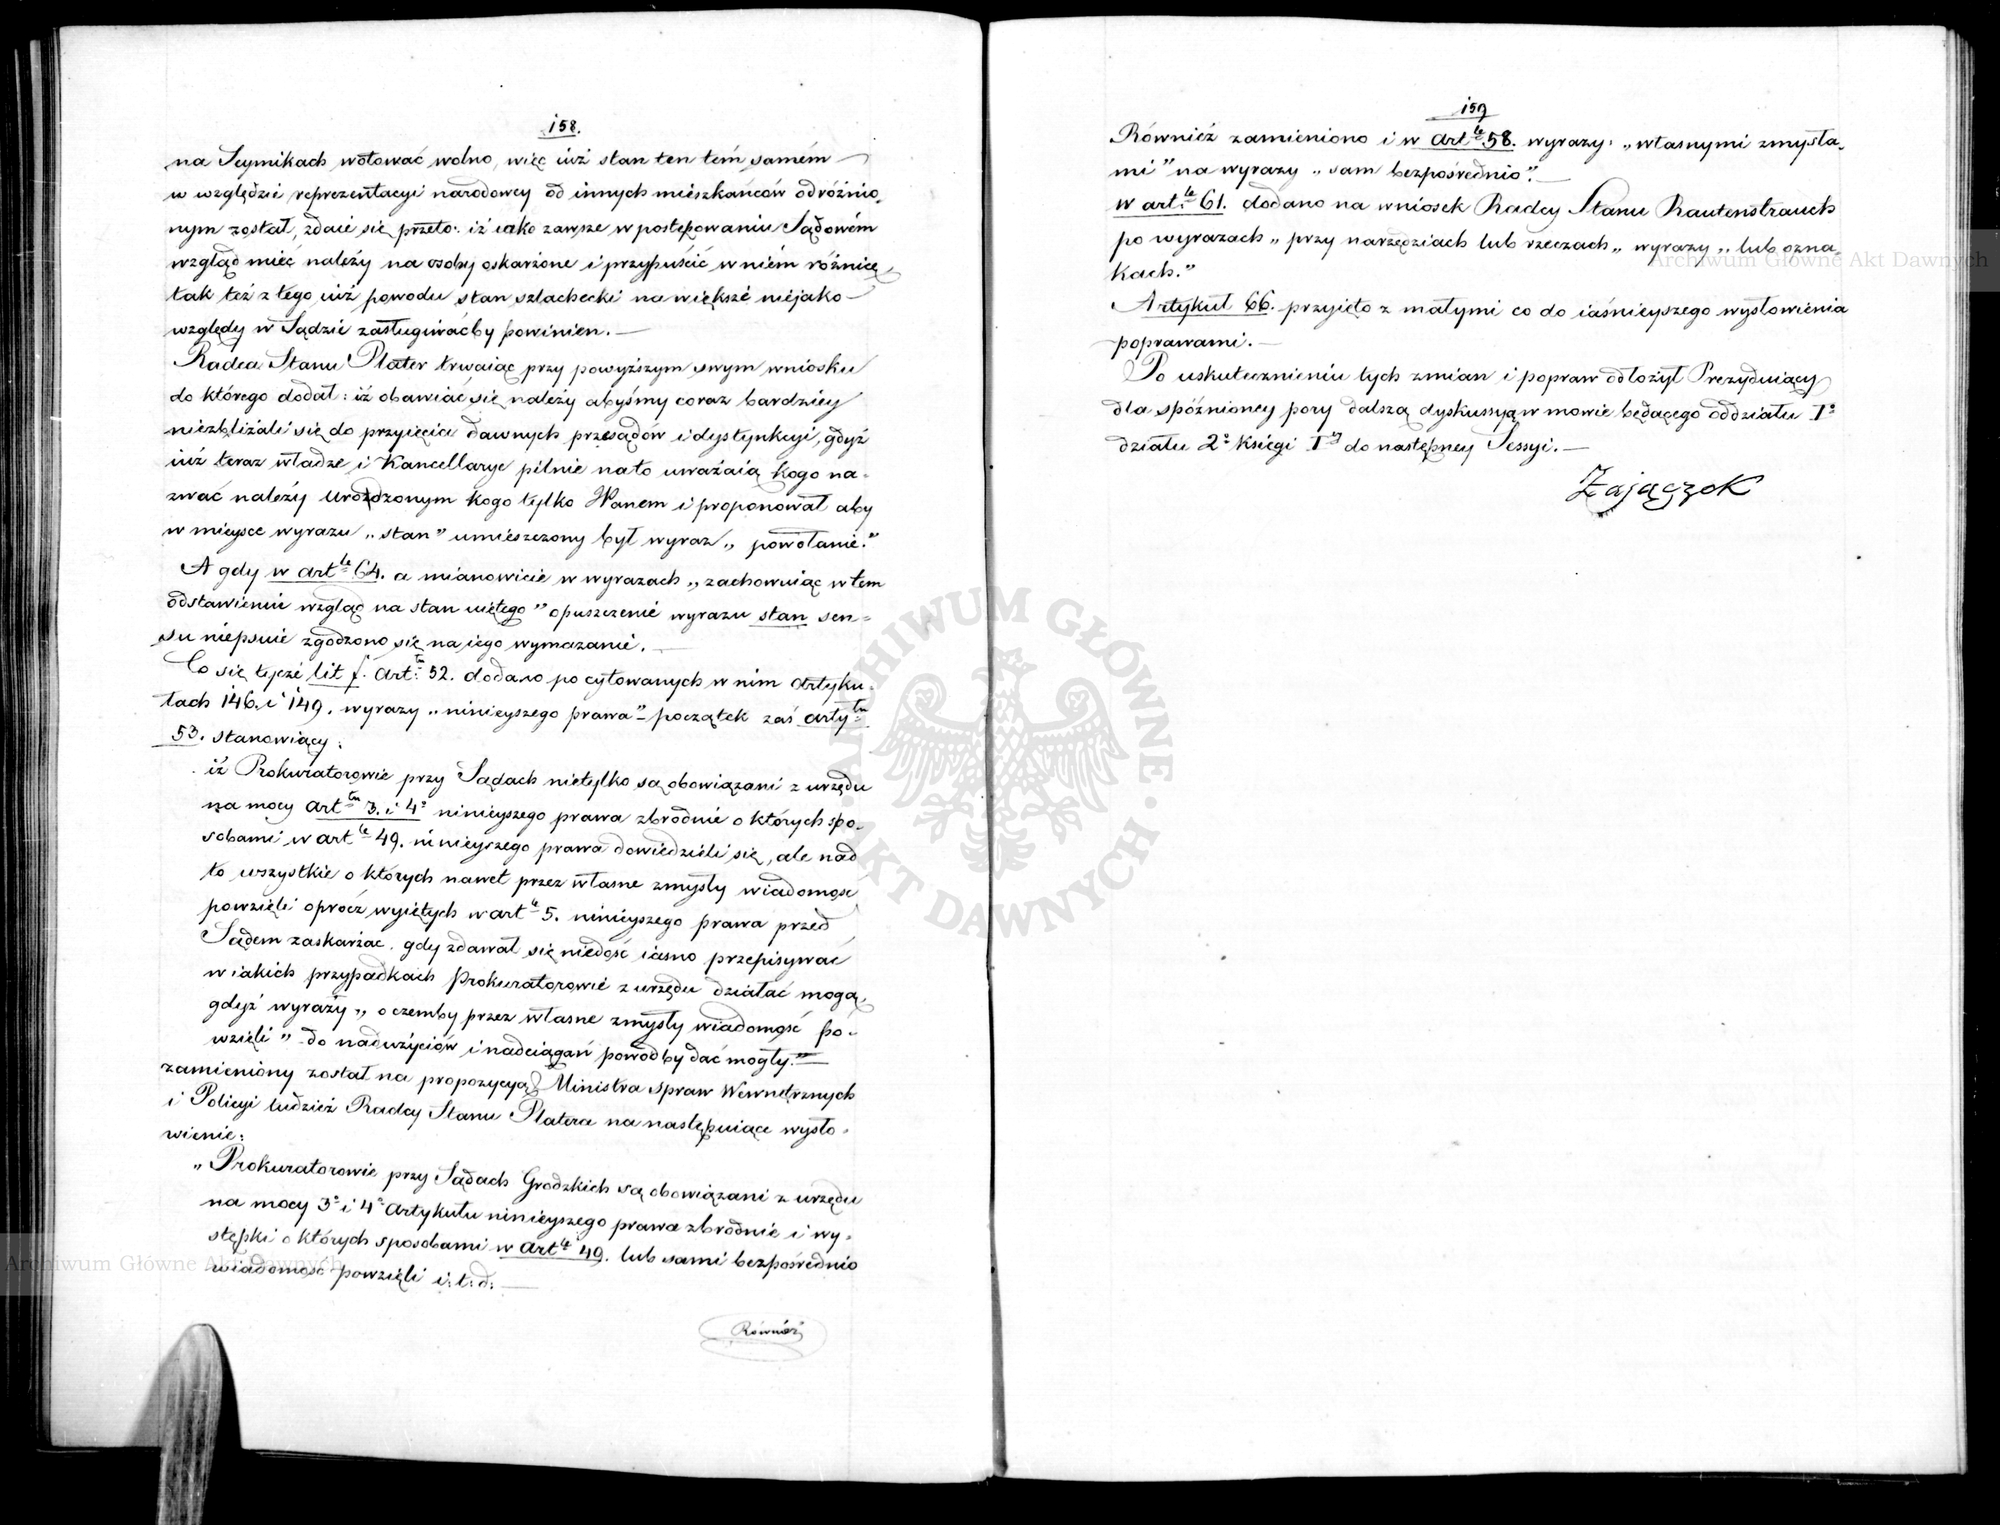 158.
na Seymikach wotować wolno, więc iuż stan ten tém samém
w względzie reprezentacyi narodowey od innych mieszkańców odróżnio„
nym został, zdaie się przeto: iż iako zawsze w postępowaniu Sądowém
wzgląd mieć należy na osoby oskarżone i przypuścić w niém różnicę,
tak też z tego iuż powodu stan szlachecki na większe niejako
względy w Sądzie zasługiwaćby powinien. —
Radca Stanu Plater trwaiąc przy powyższym swym wniosku
do którego dodał: iż obawiać się należy abyśmy coraz bardziey
niezbliżali się do przyięcia dawnych przesądów i dystynkcyi, gdyż
iuż teraz władze i Kancellarye pilnie na to uważaią kogo na„
zwać należy Urodzonym kogo tylko Panem i proponował aby
w mieysce wyrazu „stan” umieszczony był wyraz „powołanie.”
A gdy w artle 64. a mianowicie w wyrazach „zachowuiąc w tem
odstawieniu wzgląd na stan uiętego” opuszczenie wyrazu stan sen=
su niepsuie zgodzono się na iego wymazanie. —
Co się tycze lit f. Artłu 52. dodano po cytowanych w nim Artyku„
łach 146. i 149. wyrazy „ninieyszego prawa” początek zaś artyłu
53. stanowiący:
iż Prokuratorowie przy Sądach nietylko są obowiązani z urzędu
na mocy artłu 3. i 4o ninieyszego prawa zbrodnie o których spo„
sobami w artle 49. ninieyszego prawa dowiedzieli się, ale nad
to wszystkie o których nawet przez własne zmysły wiadomość
powzięli oprócz wyiętych w artle 5. ninieyszego prawa przed
Sądem zaskarżać. gdy zdawał się niedość iasno przepisywać
w iakich przypadkach Prokuratorowie z urzędu działać mogą,
gdyż wyrazy „o czemby przez własne zmysły wiadomość po„
wzięli” do nadużyciów i nadciągań powodby dać mogły.” —
zamieniony został na propozycyą Ministra Spraw Wewnętrznych
i Policyi tudzież Radcy Stanu Platera na następuiące wysło„
wienie:
„Prokuratorowie przy Sądach Grodzkich są obowiązani z urzędu
na mocy 3o i 4o Artykułu ninieyszego prawa zbrodnie i wy„
stępki o których sposobami w Artle 49. lub sami bezpośrednio
wiadomość powzięli i: t: d: —
Również
159
Również zamieniono i w artle 58. wyrazy: „własnymi zmysła„
mi” na wyrazy „sam bezpośrednio”. —
w artle 61. dodano na wniosek Radcy Stanu Rautenstrauch
po wyrazach „przy narzędziach lub rzeczach„ wyrazy „lub ozna„
kach.”
Artykuł 66. przyięto z małymi co do iaśnieyszego wysłowienia
poprawami. —
Po uskutecznieniu tych zmian i popraw odłożył Prezyduiący
dla spóźnioney pory dalszą dyskussyą w mowie będącego oddziału Io
działu 2o księgi Iey do następney Sessyi. —
Zajączek
ARCHIWUM GŁÓWNE · AKT DAWNYCH ·
Archiwum Główne Akt Dawnych
Archiwum Główne Akt Dawnych